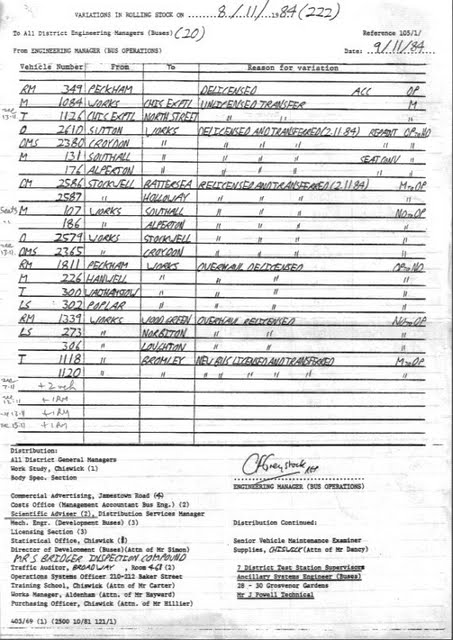 VARIATIONS IN ROLLING STOCK ON 8/11/1984 (222)
To All District Engineering Managers (Buses) (20) Reference 103/1/
From ENGINEERING MANAGER (BUS OPERATIONS) Date: 9/11/84
Vehicle Number From To Reason for variation
RM 349 PECKHAM DELICENSED ACC OP
M 1084 WORKS CHIS EXPTL UNLICENSED TRANSFER M
see 13-11 T 1126 CHIS EXPTL NORTH STREET " " "
D 2610 SUTTON WORKS DELICENSED AND TRANSFERRED (2.11.84) REPAINT OP to NO
DMS 2380 CROYDON " " " " " "
M 131 SOUTHALL " " " " SEAT CONV "
176 ALPERTON " " " " " "
DM 2586 STOCKWELL BATTERSEA RELICENSED AND TRANSFERRED (2.11.84) M to OP
2587 " HOLLOWAY " " " "
Seats M 107 WORKS SOUTHALL " " " NO to OP
" 186 " ALPERTON " " " "
D 2579 WORKS STOCKWELL " " " "
see 13.11. DMS 2365 " CROYDON " " " "
RM 1811 PECKHAM WORKS OVERHAUL DELICENSED OP to NO
M 226 HANWELL " " " "
T 300 WALTHAMSTOW " " " "
LS 302 POPLAR " " " "
RM 1339 WORKS WOOD GREEN OVERHAUL RELICENSED NO to OP
LS 273 " NORBITON " " "
306 " LOUGHTON " " "
T 1118 " BROMLEY NEW BUS LICENSED AND TRANSFERRED M to OP
1120 " " " " " " "
see 7-11 + 2
see 12-11 + 1 RM
13-11 + 1 RM
see 15-11 + 1 RM
Distribution:
All District General Managers
Work Study, Chiswick (1)
Body Spec. Section
CGreystock
ENGINEERING MANAGER (BUS OPERATIONS)
Commercial Advertising, Jamestown Road
Costs Office (Management Accountant Bus Eng.) (2)
Scientific Adviser (2), Distribution Services Manager
Mech. Engr. (Development Buses) (3)
Licensing Section (3)
Statistical Office, Chiswick
Director of Development (Buses)(Attn of Mr Simon)
MR S BRIDGER INSPECTION COMPOUND
Traffic Auditor, BROADWAY , Room (2)
Operations Systems Officer 210-212 Baker Street
Training School, Chiswick (Attn of Mr Carter)
Works Manager, Aldenham (Attn of Mr Hayward)
Purchasing Officer, Chiswick (Attn. of Mr Hillier)
Distribution Continued:
Senior Vehicle Maintenance Examiner
Supplies, CHISWICK (Attn of Mr Dancy)
7 District Test Station Supervisors
Ancillary Systems Engineer (Buses)
28 - 30 Grosvenor Gardens
Mr J Powell Technical
403/69 (1) (2500 10/81 121/1)